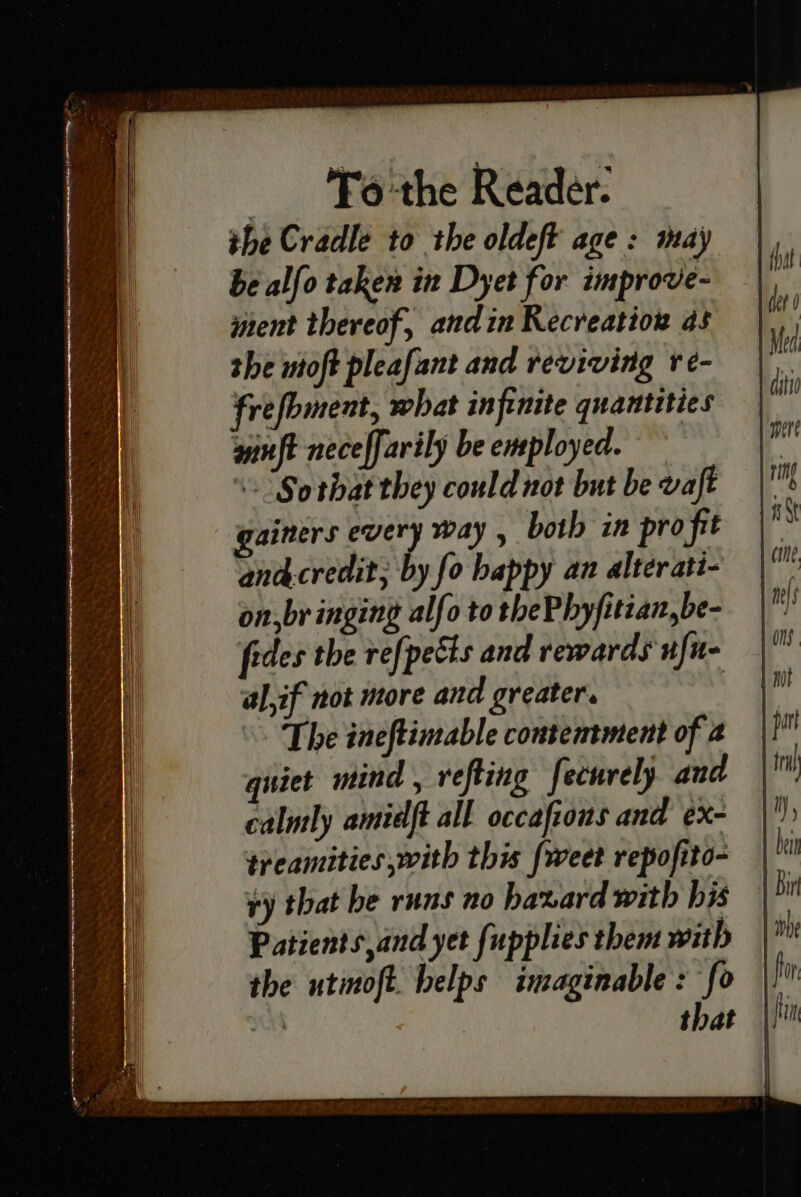 To the Reader.
the Cradle to the oldeſt age : may
be alſo taken in Dyet for improve-
ment thereof, and in Recreation as
the moſt pleaſant and reviving re-
freſhment, what infinite quantities
muſt neceſſarily be employed.
So that they could not but be vaſt
gainers every way , both in profit
and credit, by ſo happy an alterati-
on,bringing alſo to the Phyſitian,be-
ſides the reſpects and rewards uſu-
al,if not more and greater.
The ineſtimable contentment of a
quiet mind , reſting ſecurely and
calmly amidſt all occaſions and ex-
treamities,with this ſweet repoſito-
ry that he runs no hazard with his
Patients,and yet ſupplies them with
the utmoſt helps imaginable : ſo
that